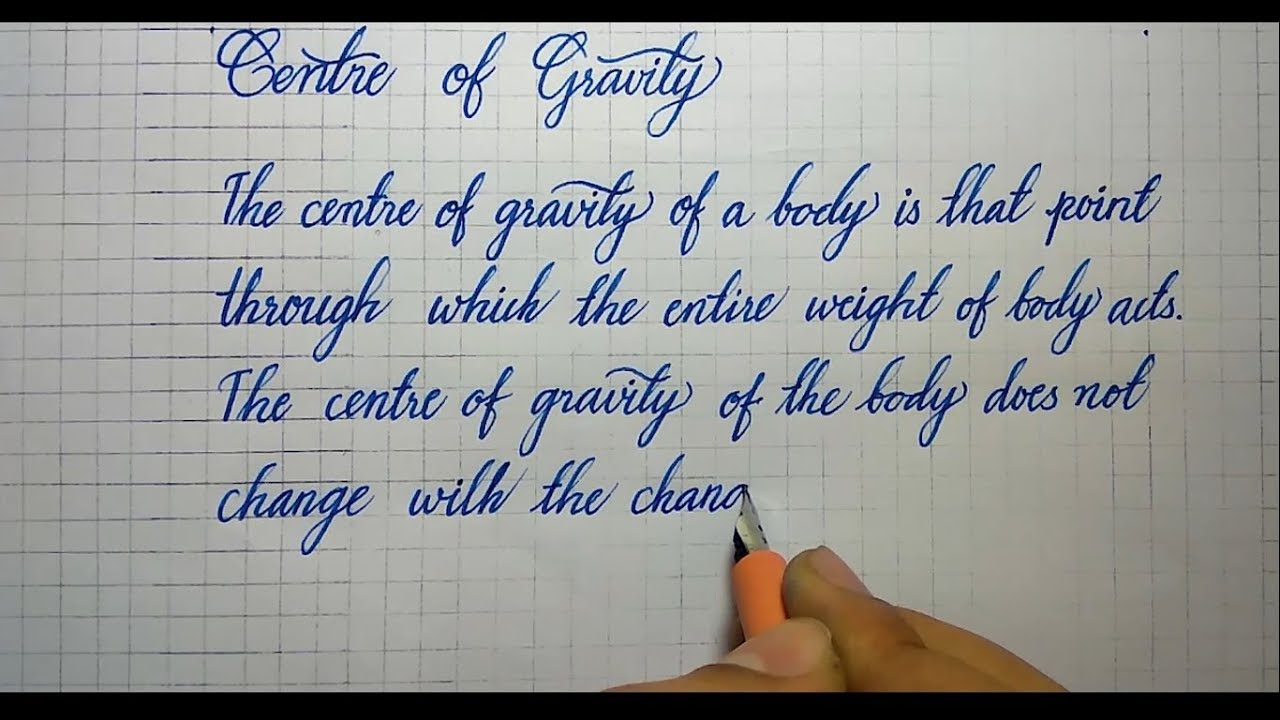 Centre of Gravity
The centre of gravity of a body is that point
through which the entire weight of body acts.
The centre of gravity of the body does not
change with the chang